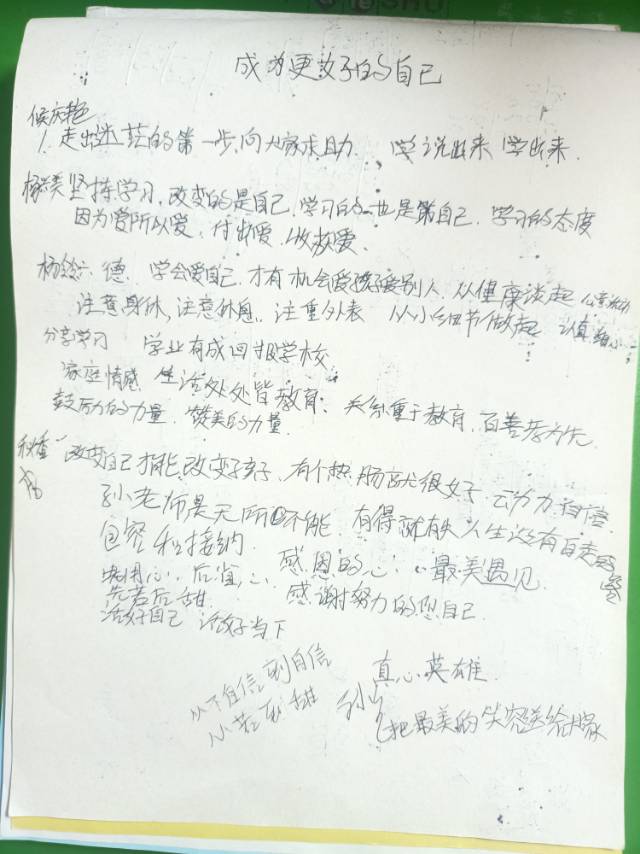 成为更好的自己
侯庆艳
1. 走出迷茫的第一步,向大家求助. 学说出来 学出来.
坚持学习,改变的是自己,学习的也是自己. 学习的态度
因为爱所以爱. 付出爱. 收获爱.
德. 学会爱自己,才有机会爱别人. 从健康谈起
注意身体,注意休息. 注重外表 从小细节做起 认真
分享学习 学业有成回报学校
家庭情感 生活处处皆教育. 关系重于教育. 百善孝为先.
鼓励的力量. 赞美的力量.
改变自己才能改变孩子. 有个热肠就很好. 动力
孙老师是无所不能. 有得就有失 人生没有白走的
包容和接纳. 感恩的心. 最美遇见. 路
先苦后甜. 感谢努力的您自己.
活好自己 活好当下
从不自信到自信 真心英雄.
从苦到甜 把最美的笑容送给大家